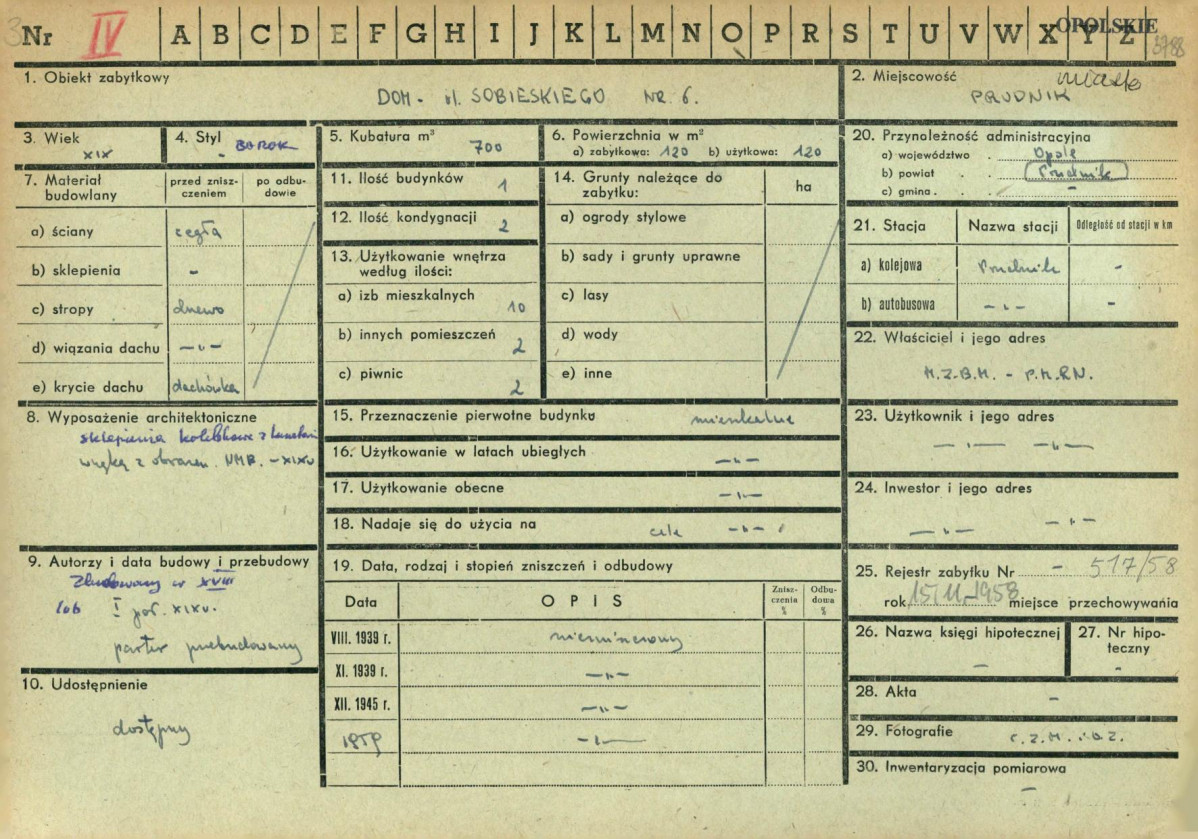 Nr IV A B C D E F G H I J K L M N O P R S T U V W X Y Z OPOLSKIE
3788
1. Obiekt zabytkowy
DOM - ul. SOBIESKIEGO NR 6.
2. Miejscowość miasto
PRUDNIK
3. Wiek
XIX
4. Styl
- BAROK
5. Kubatura m³
700
6. Powierzchnia w m²
a) zabytkowa: 120 b) użytkowa: 120
20. Przynależność administracyjna
a) województwo . Opole
b) powiat . . Prudnik
c) gmina . . -
7. Materiał budowlany
przed zniszczeniem
po odbudowie
a) ściany cegła
b) sklepienia -
c) stropy drewno
d) wiązania dachu -"-
e) krycie dachu dachówka
11. Ilość budynków 1
12. Ilość kondygnacji 2
13. Użytkowanie wnętrza
według ilości:
a) izb mieszkalnych 10
b) innych pomieszczeń 2
c) piwnic 2
14. Grunty należące do
zabytku:
ha
a) ogrody stylowe
b) sady i grunty uprawne
c) lasy
d) wody
e) inne
21. Stacja Nazwa stacji Odległość od stacji w km
a) kolejowa Prudnik -
b) autobusowa -"- -
22. Właściciel i jego adres
M.Z.B.M. - P.M.R.N.
8. Wyposażenie architektoniczne
sklepienia kolebkowe z lunetami
wnęka z obrazem NMP. - XIXw
15. Przeznaczenie pierwotne budynku mieszkalne
16. Użytkowanie w latach ubiegłych -"-
17. Użytkowanie obecne -"-
18. Nadaje się do użycia na cele -"-
23. Użytkownik i jego adres
-"- -"-
24. Inwestor i jego adres
-"- -"-
9. Autorzy i data budowy i przebudowy
Zbudowany w XVIII
lub I poł. XIXw.
parter przebudowany
10. Udostępnienie
dostępny
19. Data, rodzaj i stopień zniszczeń i odbudowy
Data OPIS Zniszczenia % Odbudowa %
VIII. 1939 r. niezniszczony
XI. 1939 r. -"-
XII. 1945 r. -"-
1959 -"-
25. Rejestr zabytku Nr - 517/58
rok 15.XI.1958 miejsce przechowywania
26. Nazwa księgi hipotecznej
-
27. Nr hipoteczny
-
28. Akta -
29. Fotografie
30. Inwentaryzacja pomiarowa
-